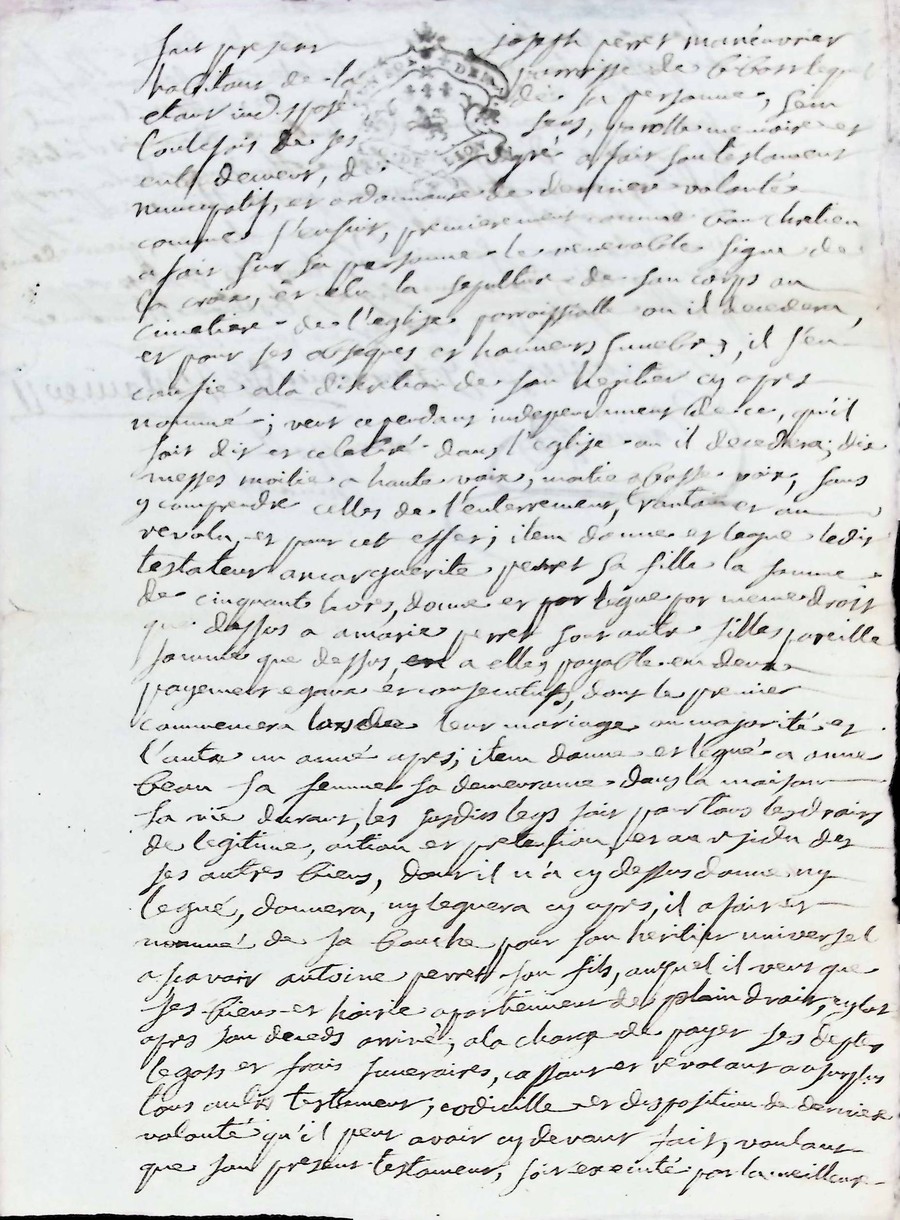 fut present joseph perret manœuvrier
habitant de la parroisse de
etant indisposé de sa personne, sein
toutefois de ses sens, parolle memoire et
entendement, de gré a fait son testament
nuncupatif, et ordonnance de derniere volonté
comme s'ensuit, premierement comme bon chretien
a fait sur sa personne le venerable signe de
la croix, et elu la sepulture de son corps au
cimetiere de l'eglise parroissialle ou il decedera,
et pour ses obseques et honneurs funebres, il s'en
confie a la discretion de son heritier cy apres
nommé; veut cependant independament de ce, qu'il
soit dit et celebré dans l'eglise ou il decedera, dix
messes moitié a haute voix, moitié a basse voix, sans
y comprendre celles de l'enterrement, trantain et an
revolu, et pour cet effet; item donne et legue ledit
testateur a marguerite perret sa fille la somme
de cinquant livres, donne et legue par meme droit
que dessus a marie perret son autre fille pareille
somme que dessus, a elles payable en deux
payement egaux et consecutifs, dont le premier
commencera lors de leur mariage ou majorité et
l'autre un anné apres; item donne et legué a anne
beau sa femme sa demeurance dans la maison
sa vie durant, les susdits legs fait pour tous les droits
de legitime, action et pretention, et au residu de
ses autres biens, dont il n'a cy dessus donné ny
legué, donnera, ny leguera cy apres, il a fait et
nommé de sa bouche pour son heritier universel
a scavoir antoine perret son fils, auquel il veut que
ses biens et hoirie apartiennent de plain droit,
apres son deceds arrivé, a la charge de payer ses deptes
legats et frais funeraires, cassant et revoquant au surplus
tous autres testament, codicille et disposition de derniere
volonté qu'il peut avoir cy devant fait, voulant
que son present testament, soit executé par la meilleure